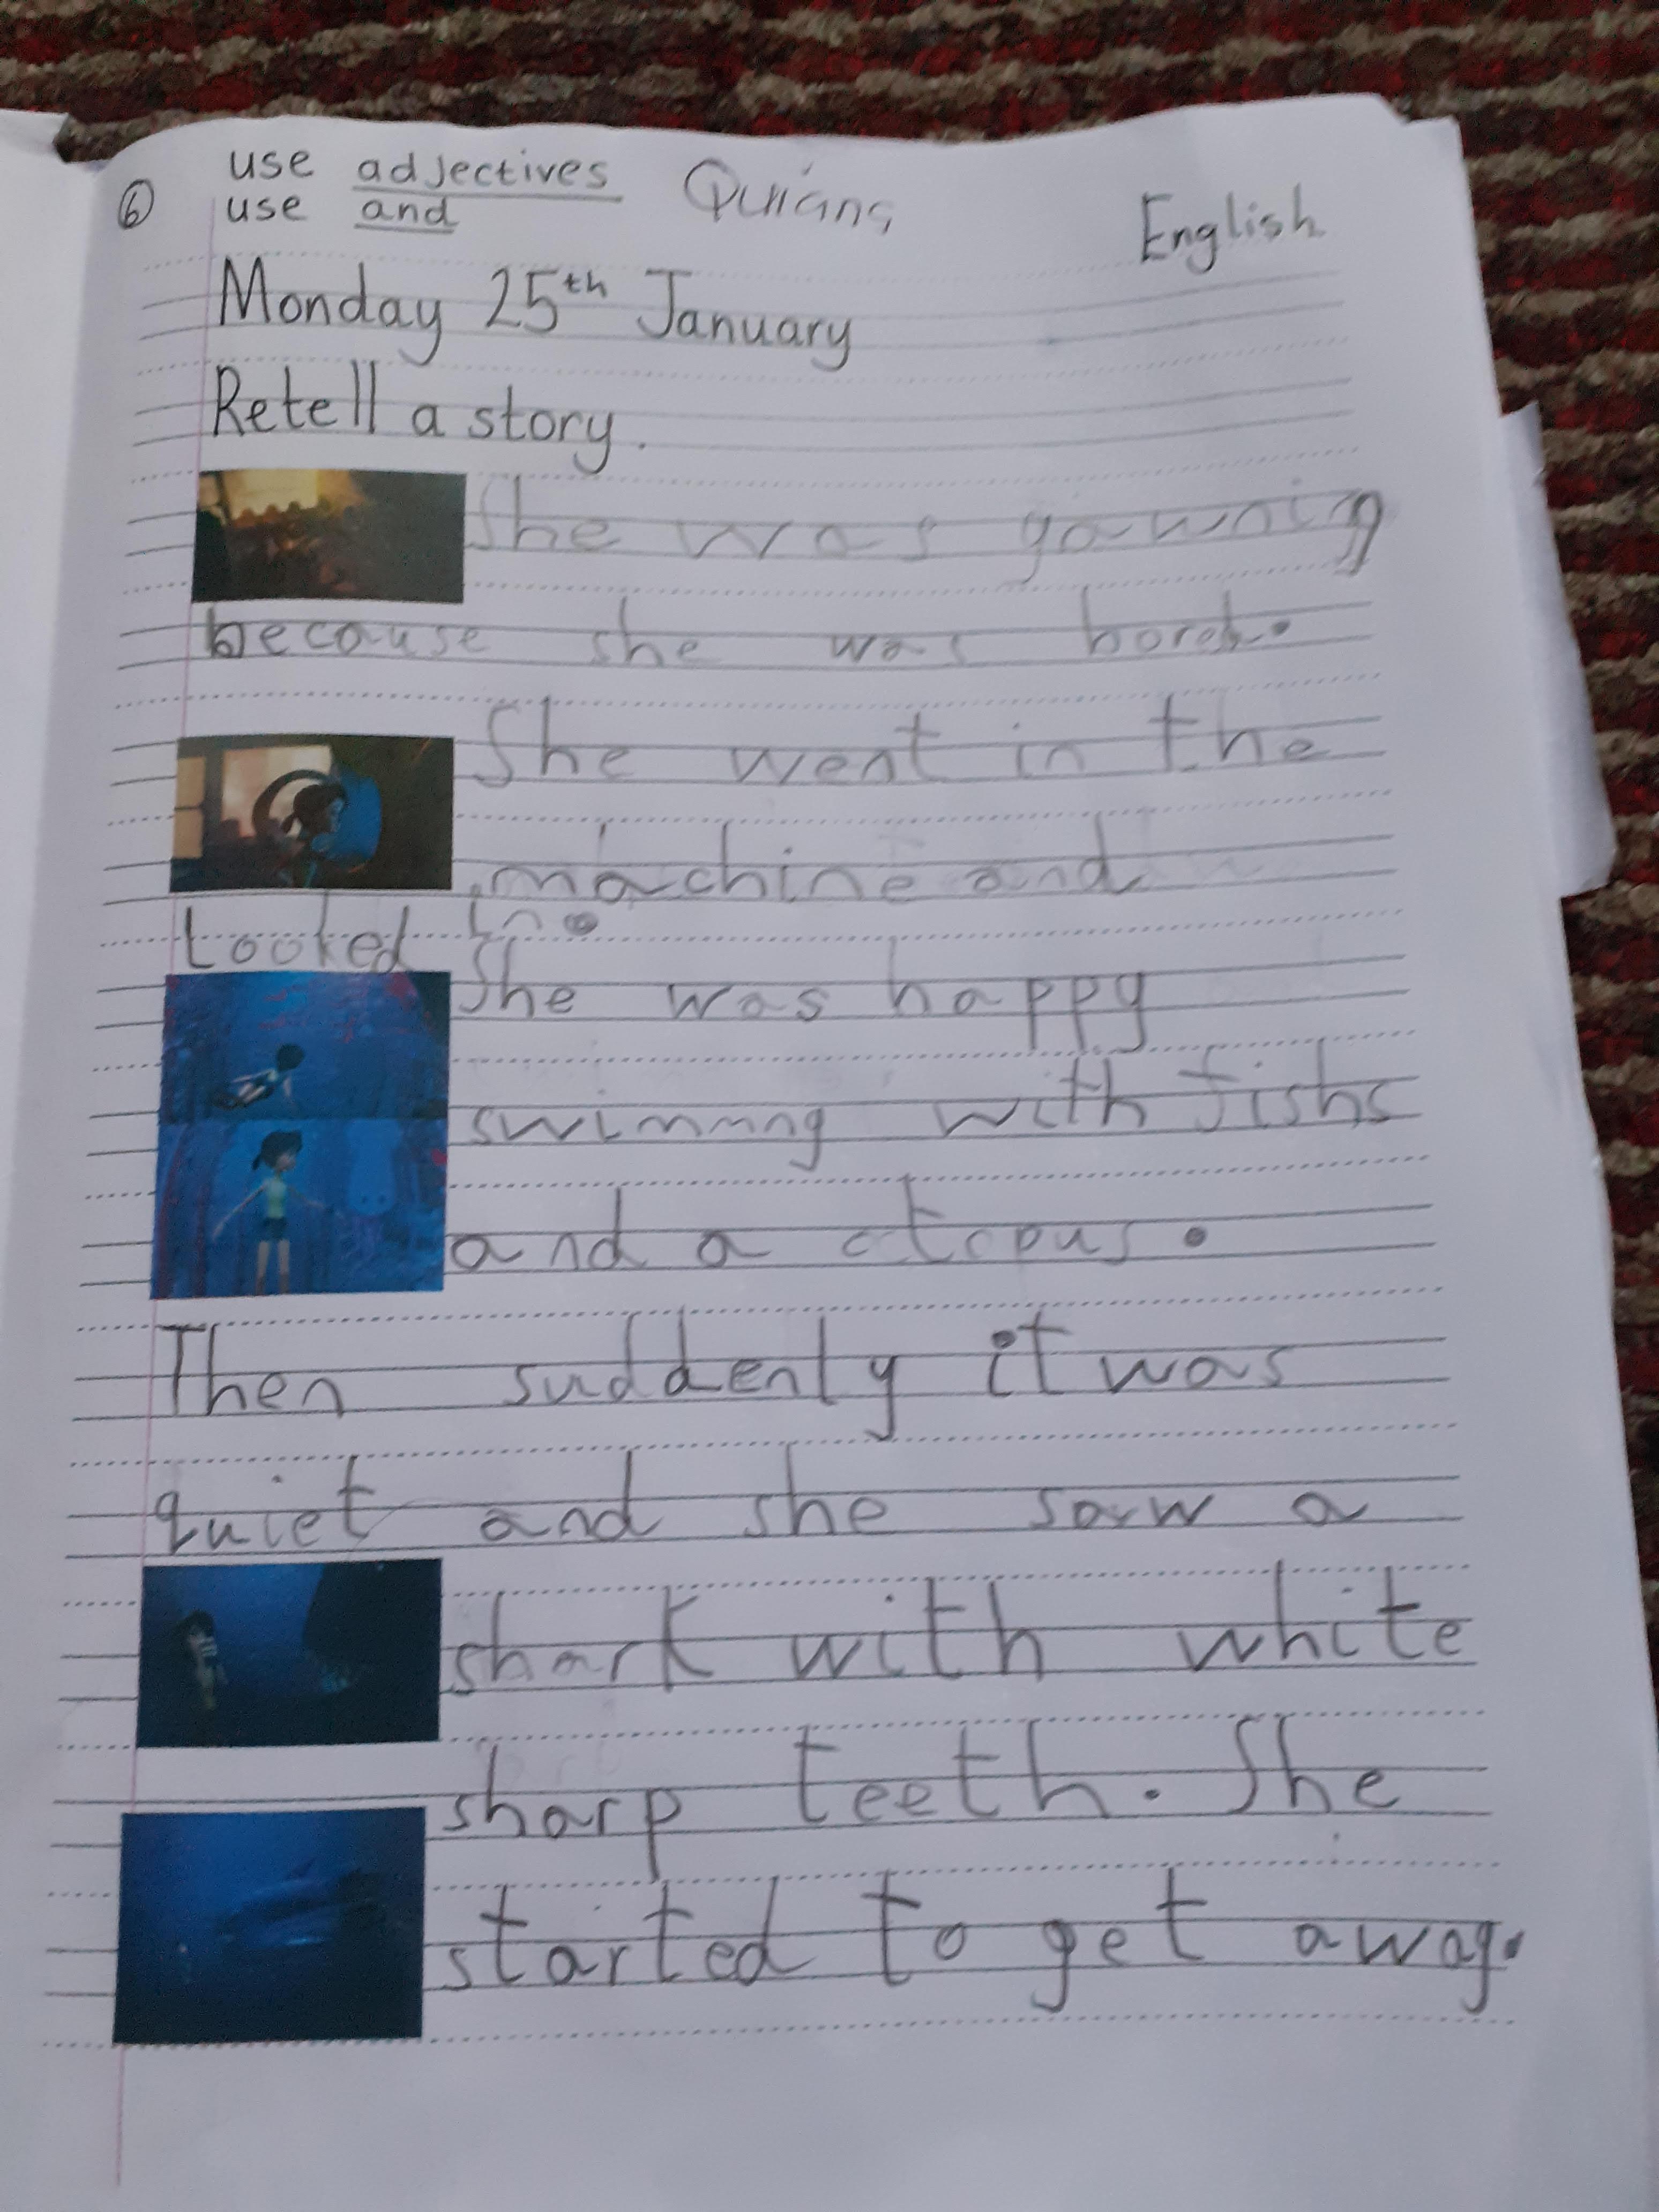 use adjectives
6 use and
English
Monday 25th January
Retell a story.
She was yawning
because she was bored.
She went in the
machine and
Looked in.
She was happy
swimmng with fishs
and a otcpus.
Then suddenly it was
quiet and she saw a
shark with white
sharp teeth. She
started to get away.